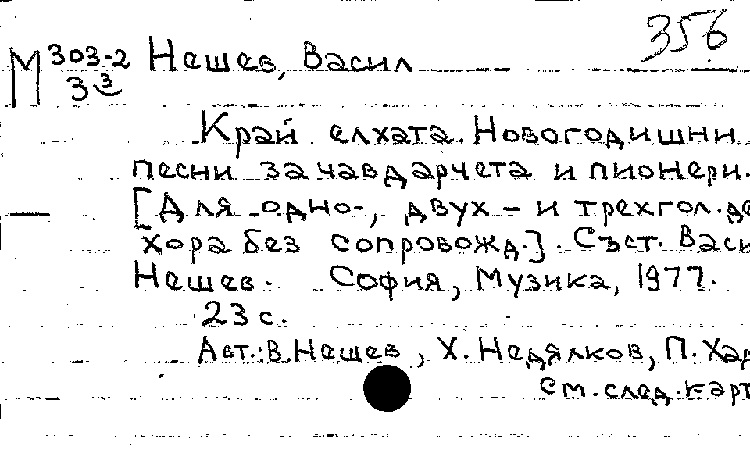 356
М 303-2 Нешев, Васил
З 3
Край елхата. Новогодишни
песни за чавдарчета и пионери.
[Для одно-, двух- и трехгол. де
хора без сопровожд.]. Съст. Васи
Нешев. София, Музика, 1977.
23 с.
Авт.: В. Нешев, Х. Недялков, П. Хад
см. след. карт